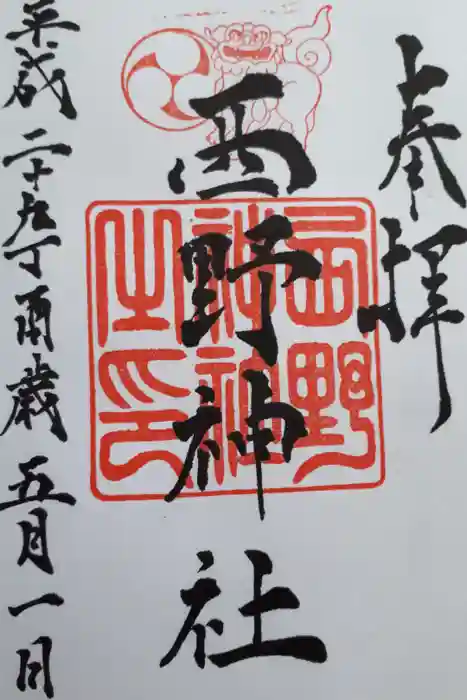 奉拝
西野神社
平成二十九丁酉歳五月一日
西野
神社
之印